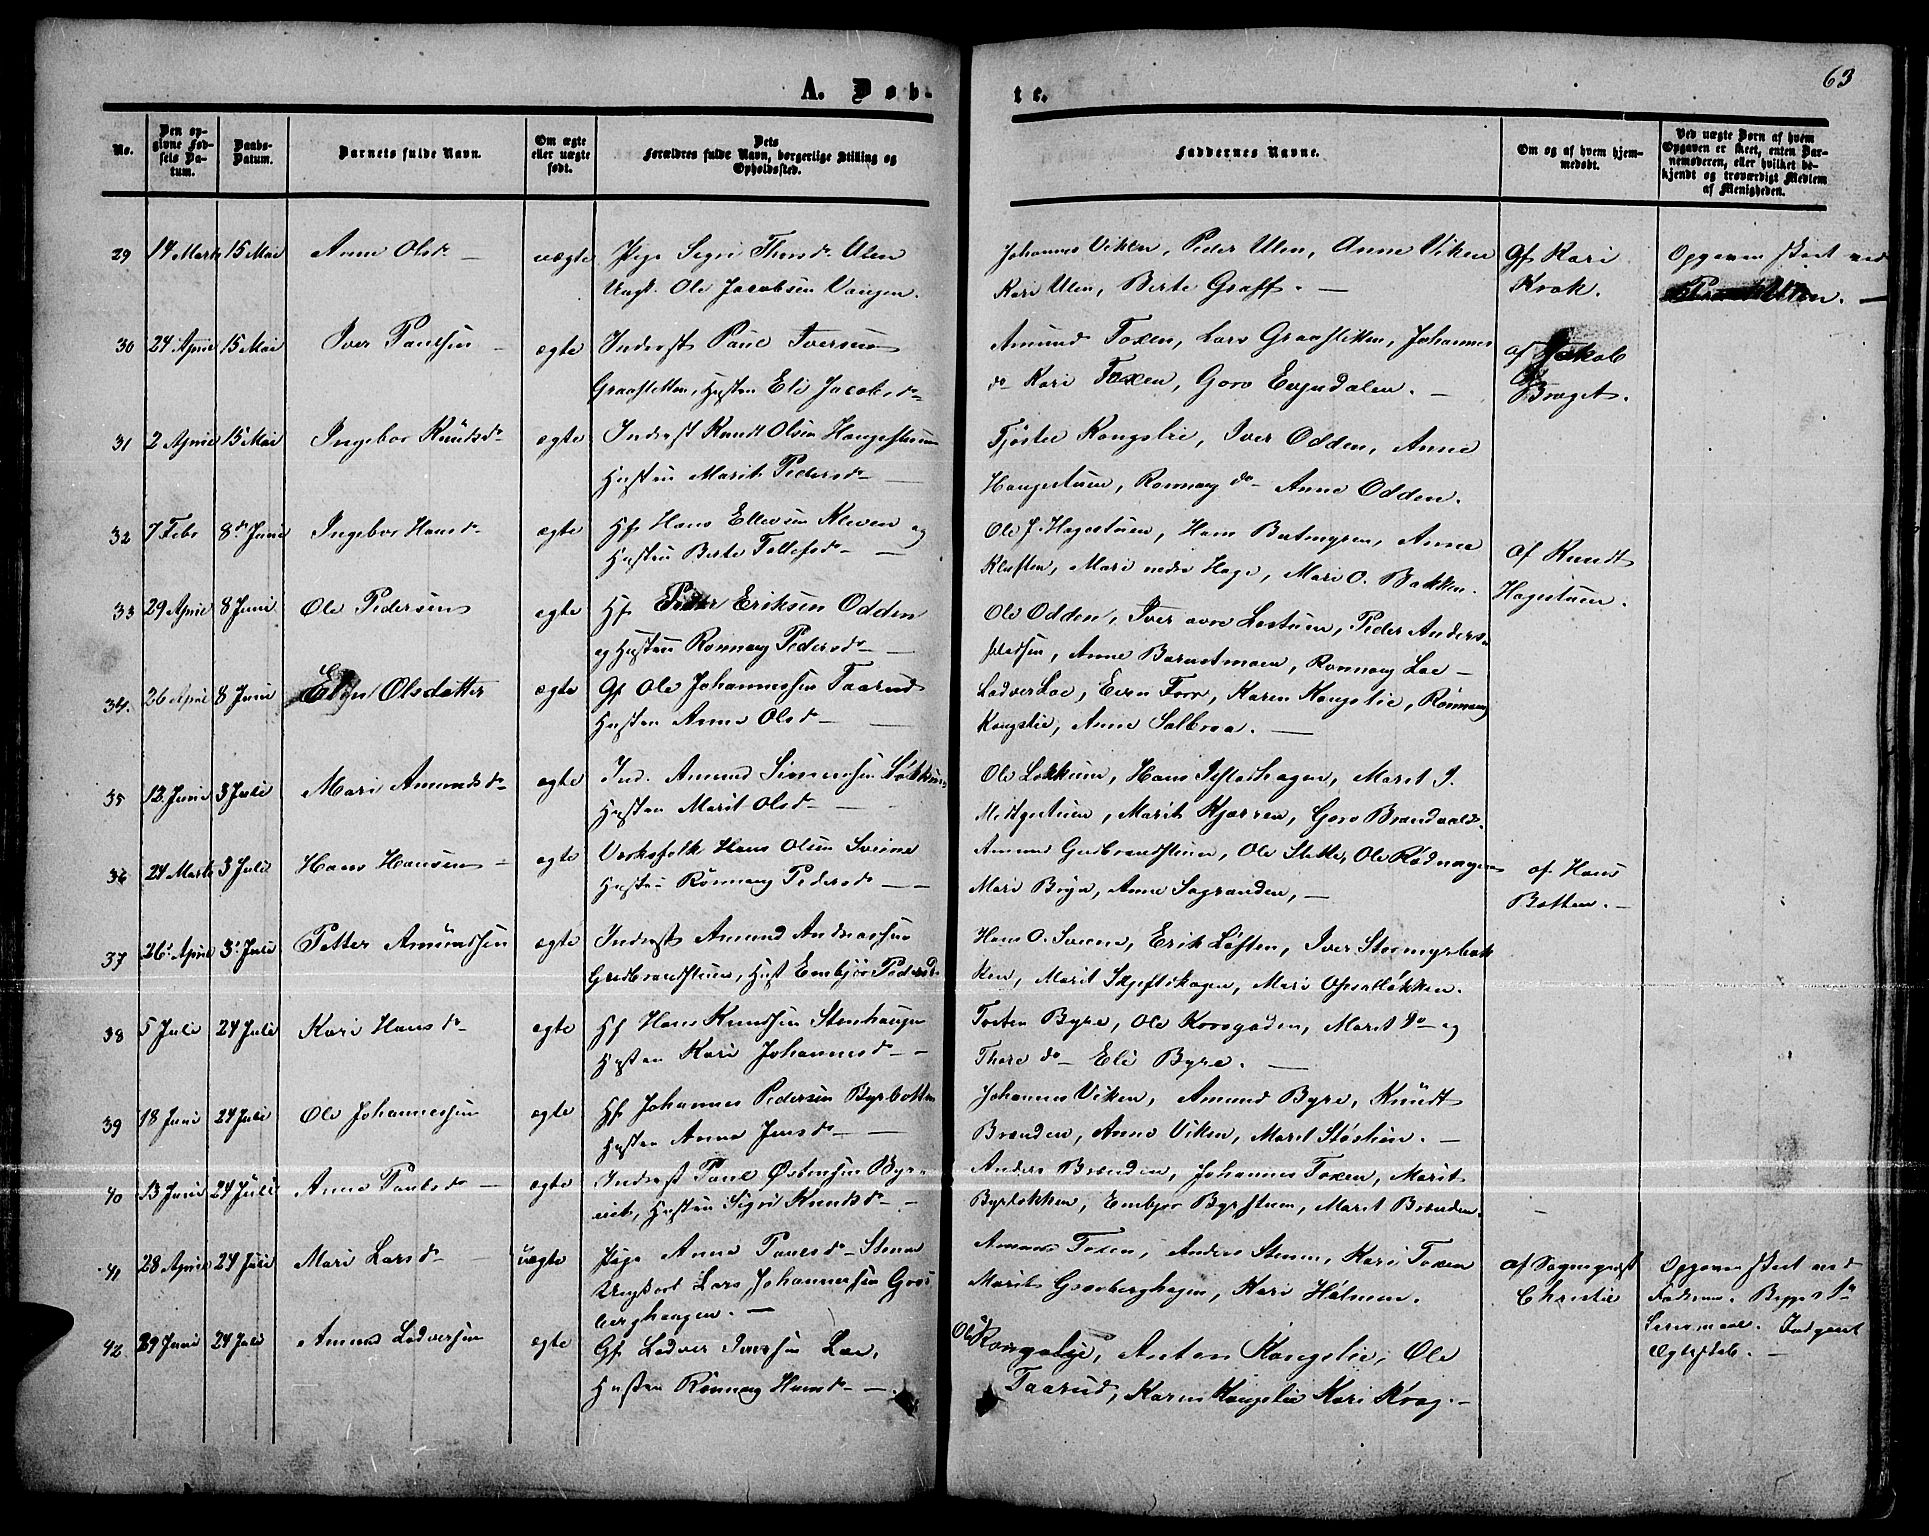 63
A. Døb-
te.
No.
Den op-
givne Fød-
sels Da-
tum.
Daabs-
Datum.
Barnets fulde Navn.
Om ægte
eller uægte
født.
Dets
Forældres fulde Navn, borgerlige Stilling og
Opholdssted.
Faddernes Navne.
Om og af hvem hjem-
medøbt.
Ved uægte Børn af hvem
Opgaven er skeet, enten Bar-
nemoderen, eller hvilket be-
kjendt og troværdigt Medlem
af Menigheden.
29 14 Marts 15 Mai Anne Olsd. uægte Pige Sigri Thorsd. Ulen
Ungk. Ole Jacobsen Vangen.
Johannes Viken, Peder Ulen, Anne Viken
Kari Ulen, Berte Graff.
Af Kari
Krok.
Opgaven skeet ved
30 24 April 15 Mai Iver Paulsen ægte Inderst Paul Iversen
Graasletten, Hustru Eli Jacobsd.
Amund Toxen, Lars Graasletten, Johannes
do Kari Toxen, Goro Evjudalen.
af Jakob
Bræget.
31 2 April 15 Mai Ingebor Knudsd. ægte Inderst Knudt Olsen Haugestuen
Hustru Marit Pedersd.
Tjøstel Kongslie, Iver Odden, Anne
Haugestuen, Ronnaug do Anne Odden.
32 7 Febr 8de Juni Ingebor Hansd. ægte Hf Hans Ellevsen Kleven og
Hustru Berte Tollefsd.
Ole J. Hagestuen, Hans Bratmyren, Anne
Kluften, Mari nedre Hage, Mari O. Bakken.
af Knudt
Hagestuen.
33 29 April 8 Juni Ole Pedersen ægte Hf Peder Eriksen Odden
og Hustru Ronnaug Pedersd.
Ole Odden, Iver øvre Løstuen, Peder Anders-
pladsen, Anne Barnetmoen, Ronnaug Loe
34. 26 April 8 Juni Elin Olsdatter ægte Gf Ole Johannessen Taarud
Hustru Anne Olsd.
Lodver Loe, Even Forr, Karen Kongslie, Rønnaug
Kongslie, Anne Solbraa.
35 12 Juni 3 Juli Mari Amundsd. ægte Ind. Amund Simensen Løkken
Hustru Marit Olsd.
Ole Løkkum, Hans Jisladhagen, Marit J.
Midtgestuen, Marit Kjærren, Goro Brandvold.
36 24 Marts 3 Juli Hans Hansen ægte Verksfolk Hans Olsen Sveine
Hustru Rønnaug Pedersd.
Amund Gudbrandstuen, Ole Slette, Ole Rødnagen
Mari Bryn, Anne Sagranden,
af Hans
Botten.
37 26 April 3 Juli Petter Amundsen ægte Inderst Amund Andreassen
Gudbrandstuen, Hust Embjør Pedersd.
Hans O. Sveen, Erik Løften, Iver Stormyrbak
ken, Marit Skjeftskagen, Mari Opsalløkken.
38 5 Juli 24 Juli Kari Hansd. ægte Hf Hans Knudsen Stenhaugen
Hustru Kari Johannesd.
Tosten Byre, Ole Korsgaden, Marit do og
Thore do Eli Byre.
39 18 Juni 24 Juli Ole Johannessen ægte Hf Johannes Pedersen Byrbotten
Hustru Anne Jensd.
Johannes Viken, Amund Byre, Knudt
Brænden, Anne Viken, Marit Støstuen.
40 13 Juni 24 Juli Anne Paulsd. ægte Inderst Paul Østensen Byr-
eiet, Hustru Sigri Knudsd.
Anders Brænden, Johannes Toxen, Marit
Byrløkken, Embjør Byrstuen, Marit Brænden.
41 28 April 24 Juli Mari Larsd. uægte Pige Anne Paulsd. Stenen
Ungkarl Lars Johannessen Graa-
berghaugen.
Amund Toxen, Anders Stenen, Kari Toxen
Marit Graaberghagen, Kari Holmen.
af Sogneprest
Christie
Opgaven skeet ved
Faderen. Begges 1ste
Leiermaal. Indgaaet
Ægteskab.
42 29 Juni 24 Juli Amund Lodversen ægte Gf Lodver Iversen Loe,
Hustru Rønnaug Hansd.
Ole Kongslie, Anton Kongslie, Ole
Taarud, Karen Kongslie Kari Krog.